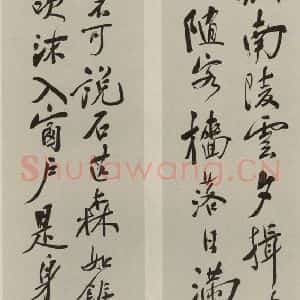 南陵雲夕揖
隨客檣落日滿
不可說石芒森如
沫入窗戶是身
Shufawang.CN